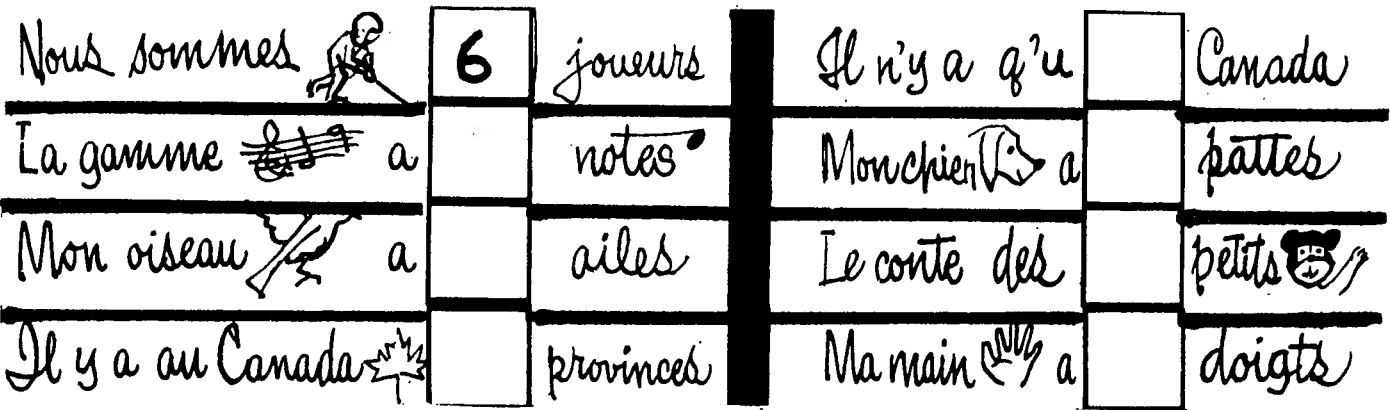 Nous sommes 6 joueurs
La gamme a notes
Mon oiseau a ailes
Il y a au Canada provinces
Il n'y a qu'u Canada
Mon chien a pattes
Le conte des petits
Ma main a doigts